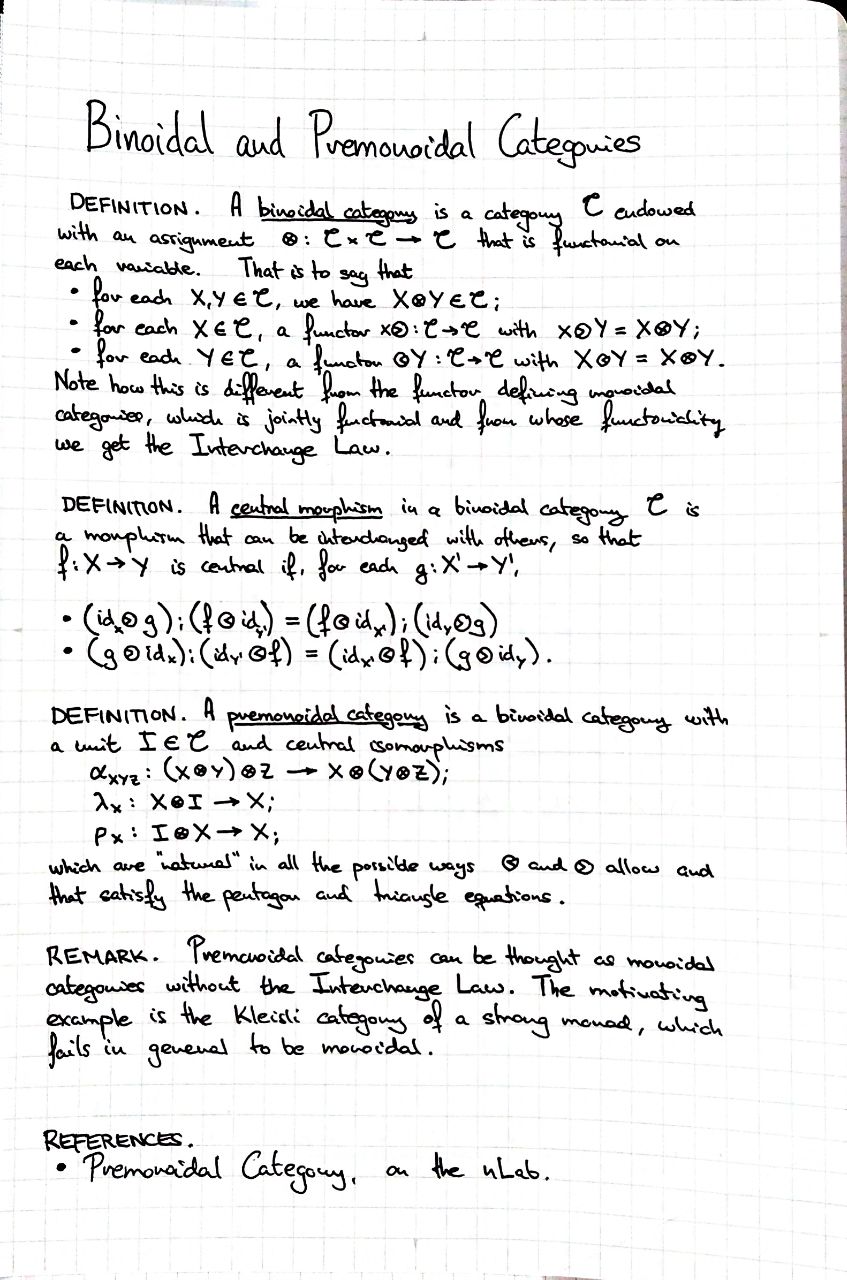 Binoidal and Premonoidal Categories
DEFINITION. A binoidal category is a category C endowed
with an assignment ⊗: C × C → C that is functorial on
each variable. That is to say that
• for each X,Y ∈ C, we have X⊗Y ∈ C;
• for each X ∈ C, a functor X⧁: C→C with X⧁Y = X⊗Y;
• for each Y ∈ C, a functor ⧀Y: C→C with X⧀Y = X⊗Y.
Note how this is different from the functor defining monoidal
categories, which is jointly functorial and from whose functoriality
we get the Interchange Law.
DEFINITION. A central morphism in a binoidal category C is
a morphism that can be interchanged with others, so that
f: X → Y is central if, for each g: X' → Y',
• (id_X ⧁ g);(f ⧀ id_Y') = (f ⧀ id_X');(id_Y ⧁ g)
• (g ⧁ id_X);(id_Y' ⧀ f) = (id_X' ⧀ f);(g ⧁ id_Y).
DEFINITION. A premonoidal category is a binoidal category with
a unit I ∈ C and central isomorphisms
α_XYZ: (X⊗Y)⊗Z → X⊗(Y⊗Z);
λ_X: X⊗I → X;
ρ_X: I⊗X → X;
which are "natural" in all the possible ways ⧀ and ⧁ allow and
that satisfy the pentagon and triangle equations.
REMARK. Premonoidal categories can be thought as monoidal
categories without the Interchange Law. The motivating
example is the Kleisli category of a strong monad, which
fails in general to be monoidal.
REFERENCES.
• Premonoidal Category, on the nLab.